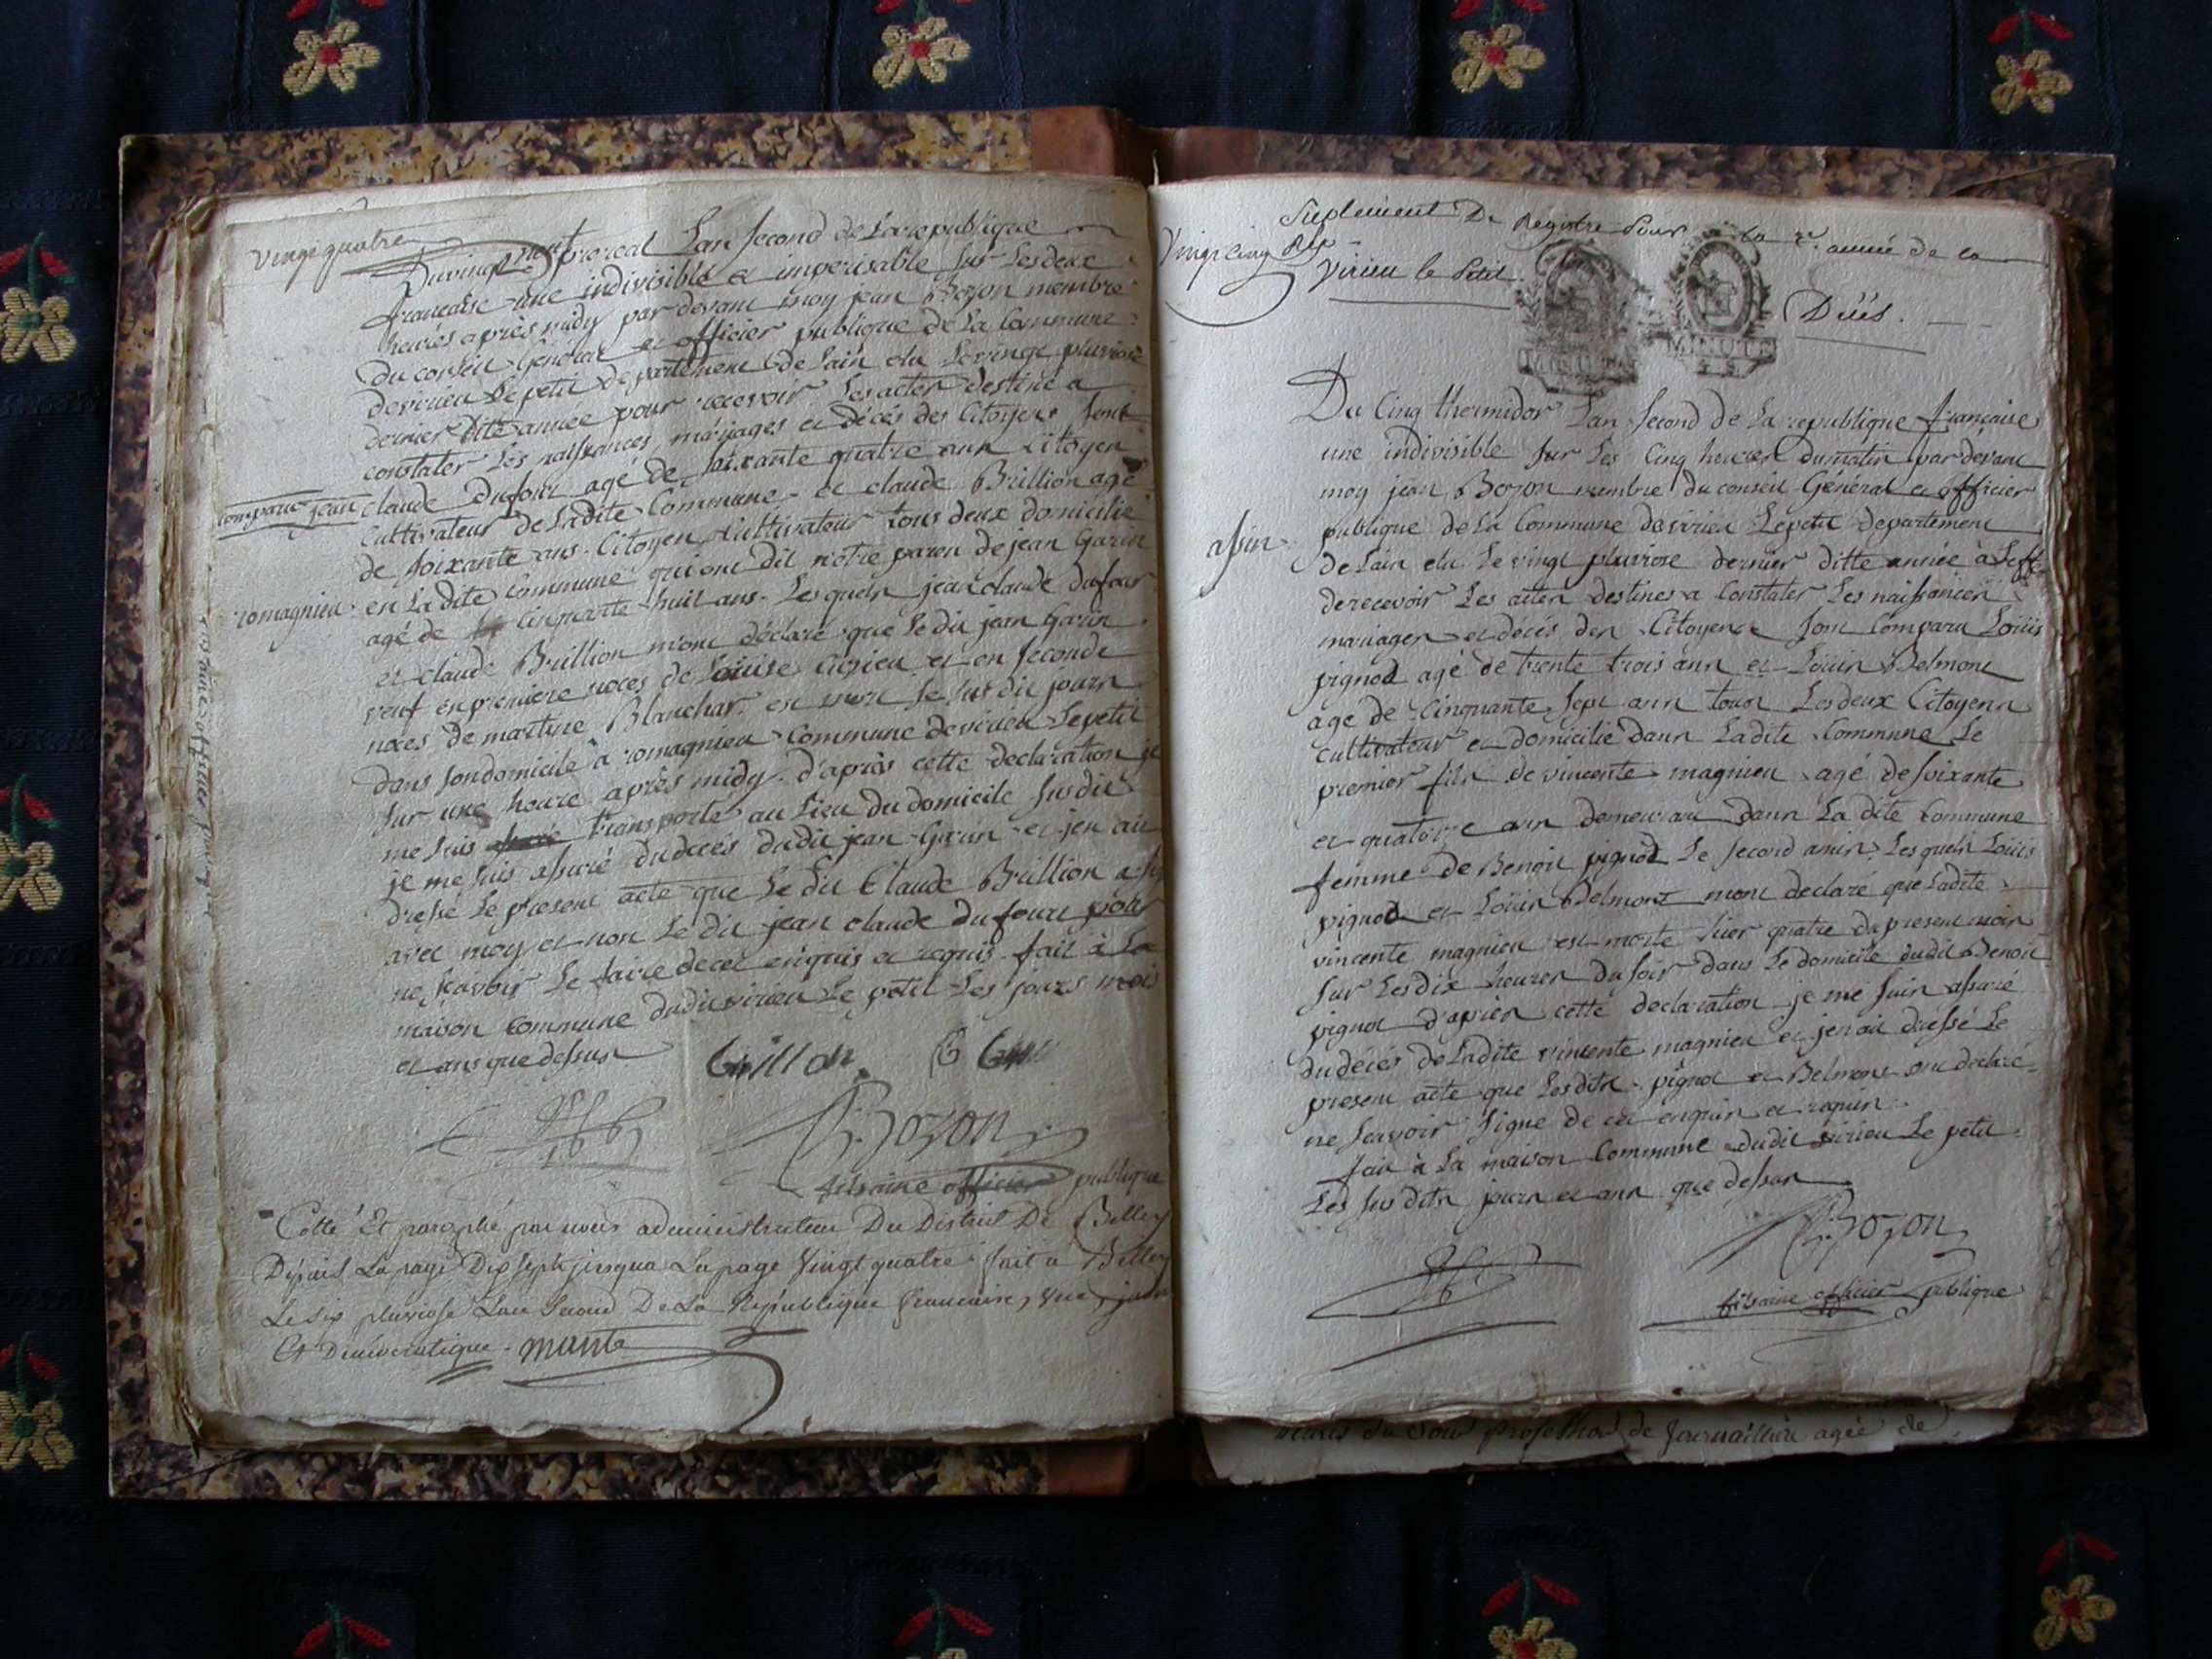 vingt quatre
Du vingt neuf floreal Lan second de La republique
francaise une indivisible et imperisable sur Les deux
heures après midy par devant moy jean Bozon membre
du conseil General et officier publique de La Commune
de virieu Le petit departement de Lain elu Le vingt pluviose
dernier ditte année pour recevoir Les actes destiné a
constater Les naissances, mariages et décés des Citoyens sont
comparu jean claude dufour agé de soixante quatre ans Citoyen
Cultivateur de Ladite Commune et claude Brillion agé
de soixante ans Citoyen Cultivateur tous deux domicilié
romagnieu en La dite Commune qui ont dit n'otre paren de jean Garin
agé de cinquante huit ans. Les quels jean claude dufour
et claude Brillion m'ont déclaré que Le dit jean Garin
veuf en premiere noces de Loüise Cusieu et en seconde
noces de martine Blanchar est mort Le sus dit jours
dans son domicile à romagnieu Commune de virieu Le petit
sur une heure après midy. d'après cette declaration je
me suis transporté au Lieu du domicile sus dit
je me suis assuré du décés du dit jean Garin et jen ait
dressé Le present acte que Le dit Claude Brillion a
avec moy et non Le dit jean claude dufour pour
ne sçavoir Le faire de cet enquis et requis. fait à La
maison commune dudit virieu Le petit Les jours mois
et ans que dessus
Bozon
fils aine officier publique
Cotté Et paraphé par nous administrateur Du District De Belley
Depuis La page Dix sept jusqua La page vingt quatre fait a Belley
Le six pluviose Lan second De La République francaise, une,
Et Democratique.
fils aine officier publique
Suplement De Registre pour la 2e année de la
Vingt cinq Rep
virieu le Petit.
Déces.
Du Cinq thermidor Lan second de La republique francaise
une indivisible sur Les Cinq heures du matin par devant
moy jean Bozon membre du conseil Général et officier
assin publique de La Commune de virieu Le petit departement
de Lain elu Le vingt pluviose dernier ditte année à Leffe
de recevoir Les actes destines a Constater Les naissances
mariages et decés des Citoyens sont Comparu Loüis
pignod agé de trente trois ans et Loüis Belmont
age de Cinquante sept ans tous Les deux Citoyens
Cultivateur et domicilié dans Ladite Commune Le
premier fils de vincente magnieu agé de soixante
et quatorze ans demeurant dans La dite Commune
femme de Benoit pignod Le second amis. Les quels Loüis
pignod et Loüis Belmont mont declaré que Ladite
vincente magnieu est morte hier quatre du present mois
sur Les dix heures du soir dans Le domicile dudit Benoit
pignot d'apres cette declaration je me suis assuré
du décés de Ladite vincente magnieu et jen ait dressé Le
present acte que Les dits pignot et Belmont ont declaré
ne scavoir signe de cet enquis et requis.
fait à La maison Commune dudit virieu Le petit
Les sus dits jours et ans que dessus
Bozon
fils aine officier publique
agée de